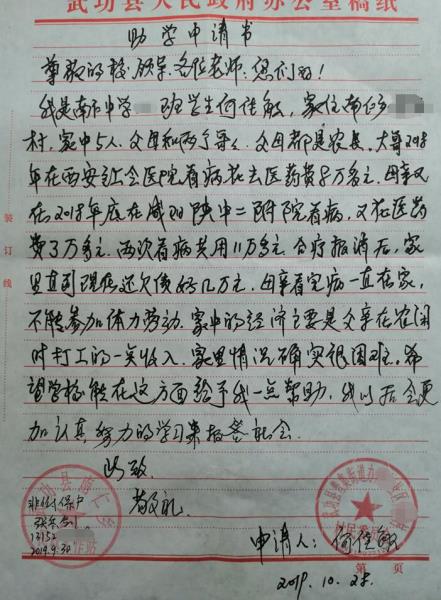 武功县人民政府办公室稿纸
助学申请书
尊敬的校领导、各位老师：您们好！
我是南仁中学 班学生何佳敏，家住南仁乡
村，家中5人，父母和两个哥哥，父母都是农民。大哥2018
年在西安红会医院看病花去医药费8万多元，母亲又
在2018年底在咸阳陕中二附院看病，又花医药
费3万多元，两次看病共用11万多元，合疗报销后，家
里直到现在还欠债好几万元。母亲看完病一直在家，
不能参加体力劳动。家中的经济主要是父亲在农闲
时打工的一点收入，家里情况确实很困难。希
望学校能在这方面给予我一点帮助，我以后会更
加认真努力的学习来报答社会。
此致
敬礼
装订线
非低保户
2019.9.30
申请人：何佳敏
2019.10.28.
第 页